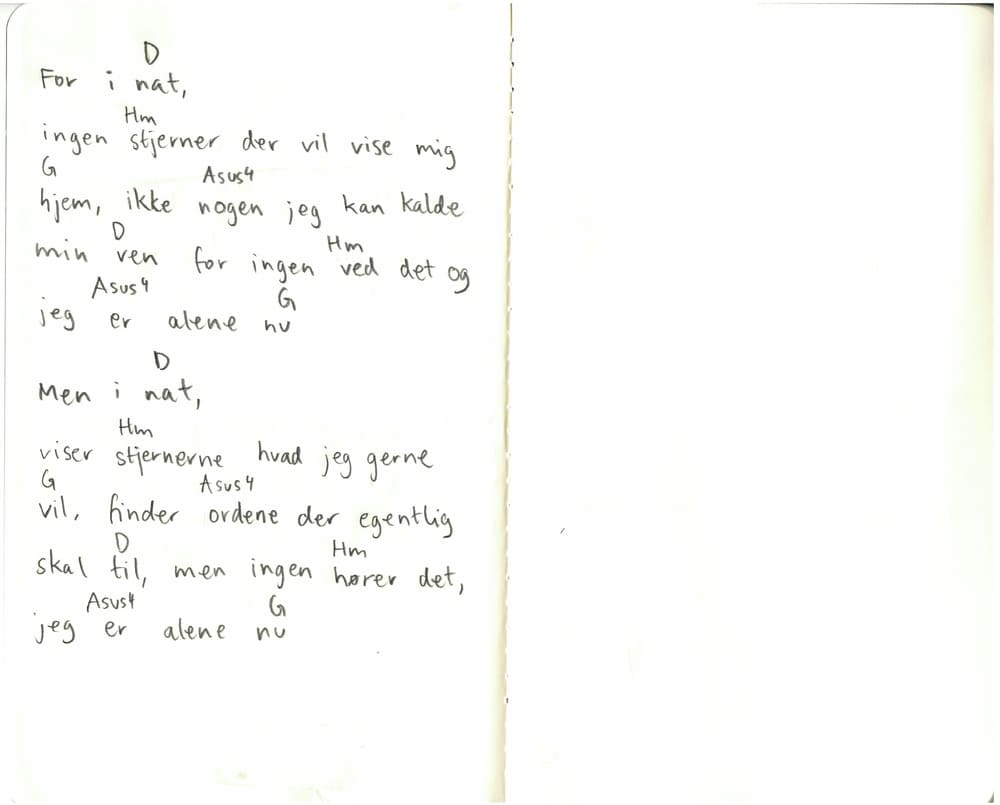 D
For i nat,
Hm
ingen stjerner der vil vise mig
G Asus4
hjem, ikke nogen jeg kan kalde
D Hm
min ven for ingen ved det og
Asus4 G
jeg er alene nu
D
Men i nat,
Hm
viser stjernerne hvad jeg gerne
G Asus4
vil, finder ordene der egentlig
D Hm
skal til, men ingen hører det,
Asus4 G
jeg er alene nu